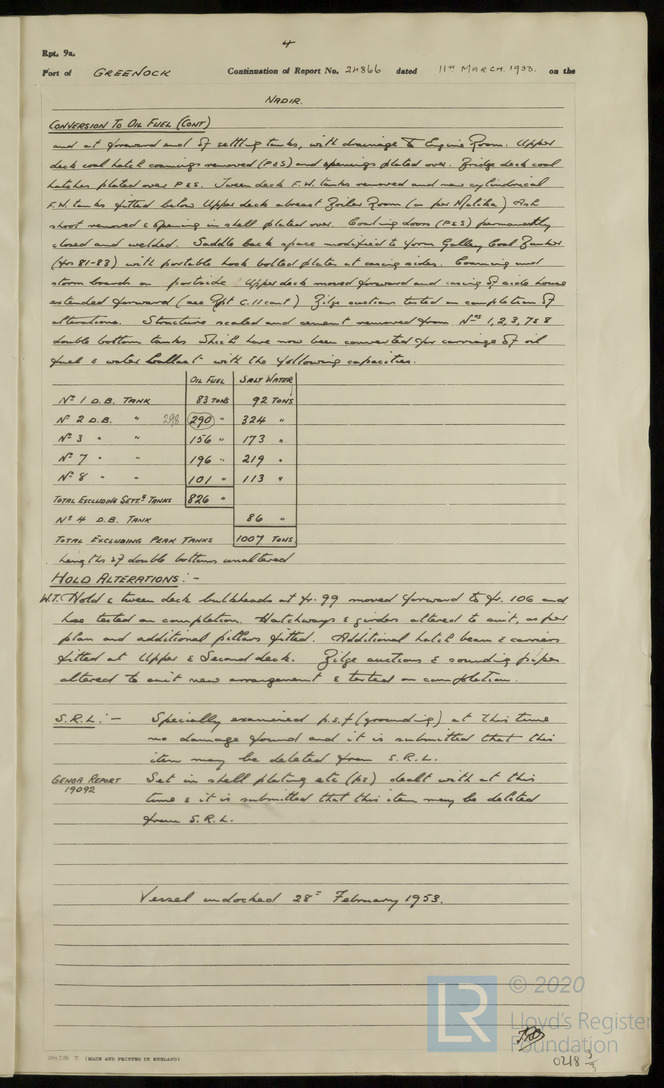 4
Rpt. 9a.
Port of GREENOCK Continuation of Report No. 24866 dated 11th MARCH. 1953. on the
NADIR.
CONVERSION TO OIL FUEL (CONT)
and at forward end of settling tanks, with drainage to Engine Room. Upper
deck coal hatch coamings removed (P&S) and openings plated over. Bridge deck coal
hatches plated over P&S. Tween deck F.W. tanks removed and new cylindrical
F.W. tanks fitted below Upper deck abreast Boiler Room (as per Malika) Ash
shoot removed & opening in shell plated over. Coaling doors (P&S) permanently
closed and welded. Saddle back space modified to form Galley Coal Bunker
(frs 81-83) with portable hook bolted plates at casing sides. Coaming and
storm boards on portside Upper deck moved forward and casing of side house
extended forward (see Rpt C.11 cont) Bilge suctions tested on completion of
alterations. Structure scaled and cement removed from Nos 1, 2, 3, 7 & 8
double bottom tanks which have now been converted for carriage of oil
fuel & water ballast with the following capacities.
OIL FUEL SALT WATER
No 1 D.B. TANK 83 TONS 92 TONS
No 2 D.B. " 298 290 " 324 "
No 3 " " 156 " 173 "
No 7 " " 196 " 219 "
No 8 " " 101 " 113 "
TOTAL EXCLUDING SETT.G TANKS 826 "
No 4 D.B. TANK 86 "
TOTAL EXCLUDING PEAK TANKS 1007 TONS.
Lengths of double bottoms unaltered
HOLD ALTERATIONS: -
W.T. Hold & tween deck bulkheads at fr. 99 moved forward to fr. 106 and
hose tested on completion. Hatchways & girders altered to suit, as per
plan and additional pillars fitted. Additional hatch beam & carriers
fitted at Upper & Second deck. Bilge suctions & sounding pipes
altered to suit new arrangement & tested on completion.
S.R.L: - Specially examined p.s.f (grounding) at this time
no damage found and it is submitted that this
item may be deleted from S.R.L.
GENOA REPORT Set in shell plating etc (ps) dealt with at this
19092 time & it is submitted that this item may be deleted
from S.R.L.
Vessel undocked 28th February 1953.
© 2020
LR
Lloyd's Register
Foundation
0218 3/3
T. (MADE AND PRINTED IN ENGLAND)